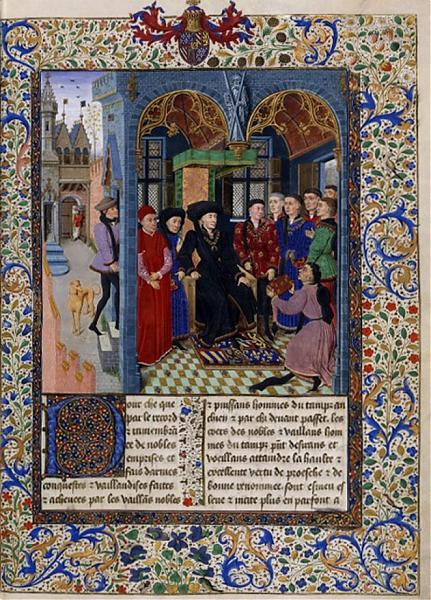 Pour che que
par le record
⁊ ramembrã
ce de nobles
emprises et
fais darmes
conquestes ⁊ vaillandises faittes
⁊ acheuees par les vaillãs nobles
⁊ puissans hommes du tamps an
chien ⁊ par chi deuant passet. les
coers des nobles ⁊ vaillans hom
mes du tamps pñt desirans et
voeillans attaindre la haulte ⁊
excellente vertu de proesche ⁊ de
bonne renommee. sont esmeu es
leue ⁊ incite plus en parfont a